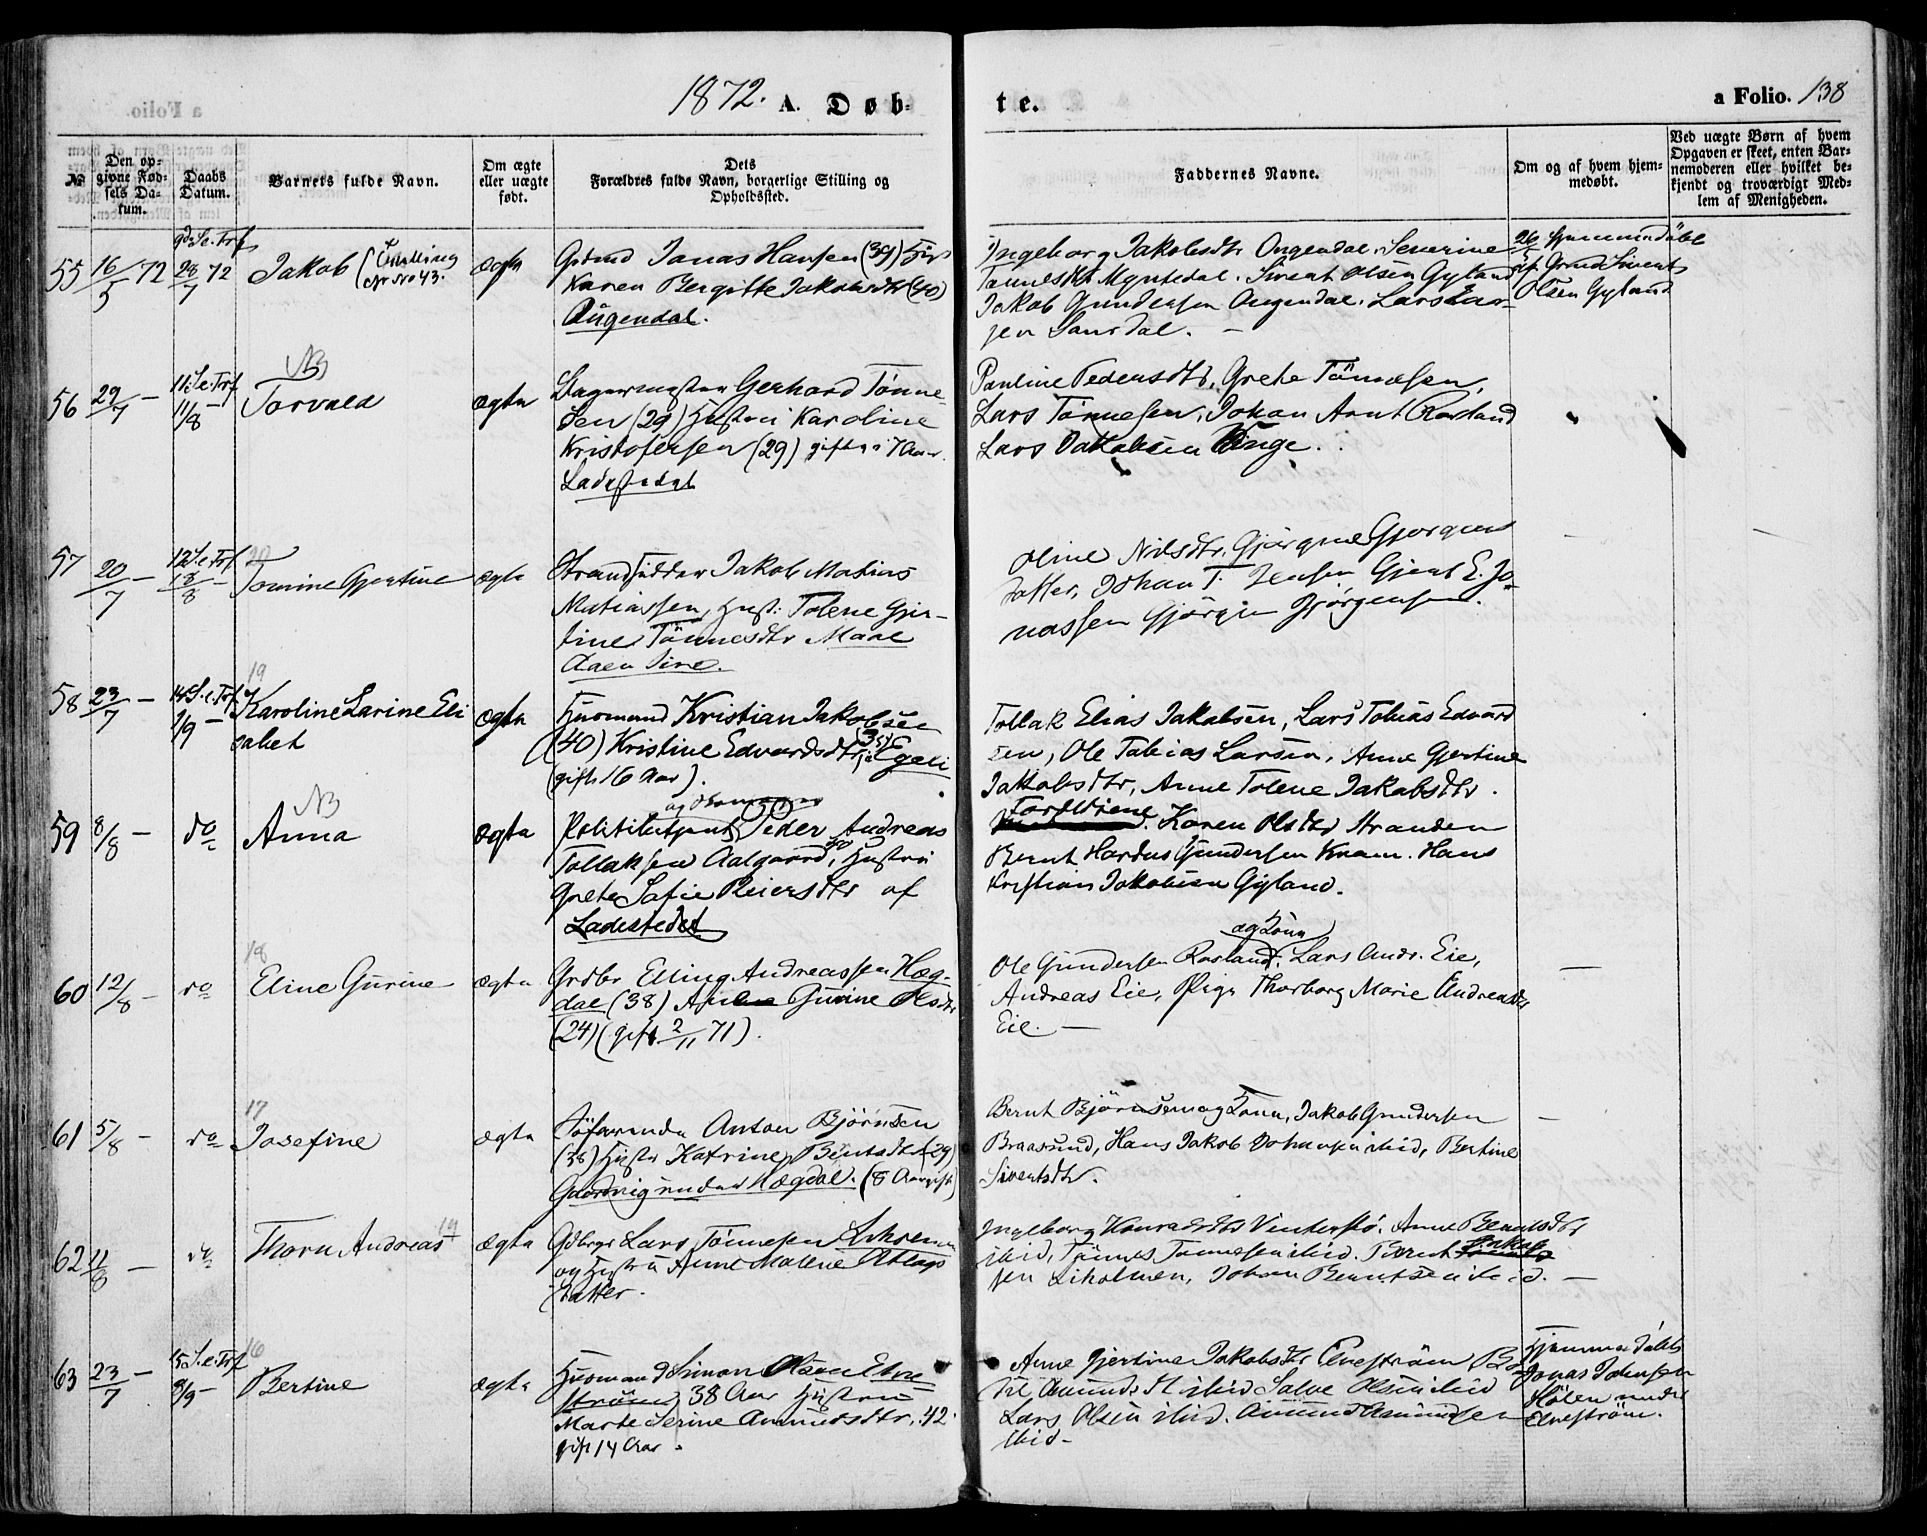 1872. A. Døb-
te.
a Folio. 138
№
Den op-
givne Fød-
sels Da-
tum.
Daabs
Datum.
Barnets fulde Navn.
Om ægte
eller uægte
født.
Dets
Forældres fulde Navn, borgerlige Stilling og
Opholdssted.
Faddernes Navne.
Om og af hvem hjem-
medøbt.
Ved uægte Børn af hvem
Opgaven er skeet, enten Bar-
nemoderen eller hvilket be-
kjendt og troværdigt Med-
lem af Menigheden.
55 16/5 72
9d. S.e.Trf
28/7 72
Jakob
No 43.
ægte
Gbmd Jonas Hansen (39)
Karen Bergitte Jakobsdtr (40)
Augendal.
Ingeborg Jakobsdtr Ongendal, Severine
Tønnesdtr Myntedal. Sivert Olsen Gyland
Jakob Gundersen Ongendal. Lars Lar-
sen
26/5 Hjemmedøbt
af Grmd Sivert
Olsen Gyland
56 29/7 —
11 S.e.Trf
11/8 —
NB
Torvald
ægte
Bagermester Gerhard Tønne-
sen (29) Hustru Karoline
Kristofersen (29) gifte i 7 Aar.
Ladestedet
Pauline Pedersdtr, Grete Tönnesen,
Lars Tønnesen, Johan Arnt Rasland
Lars Jakobsen Unge.
57 20/7 —
12 S.e.Trf
18/8 —
20
Tomine Gjertine
ægte
Strandsidder Jakob Matias
Matiassen, Hust: Tolene Gjer-
tine Tönnesdtr
Oline Nilsdtr, Gjørgine Gjorgens
datter, Johan T. Jensen Gjert E. Jo-
nassen Gjörgen Gjörgensen.
58 23/7 —
14 S.e.Trf
1/9 —
19
Karoline Larine Eli
sabet
ægte
Husmand Kristian Jakobsen
(40) Kristine Edvardsdtr (35) Egeli
(gift 16 Aar).
Tollak Elias Jakobsen, Lars Tobias Edvard
sen, Ole Tobias Larsen, Anne Gjertine
Jakobsdtr, Anne Tolene Jakobsdtr.
59 8/8 —
do
NB
Anna
ægte
Politibetjent Peder Andreas
Tollaksen Aalgaard, Hustru
Grete Safie Reiersdtr af
Ladestedet
Forældrene. Karen Olsdtr Stranden
Bernt Hardus Gundersen Kram. Hans
Kristian Jakobsen Gyland.
60 12/8 —
do
18
Eline Gurine
ægte
Grdbr Elling Andreassen Hæg-
dal (38) Gurine Olsdtr
(24) (gift 2/11 71).
og Kone
Ole Gundersen Rasland. Lars Andr. Eie,
Andreas Eie, Pige Thorborg Marie Andreasdtr
Eie. —
—
61 5/8 —
do
17
Josefine
ægte
Søfarende Anton Bjørnsen
(38) Hustr Katrine Berntsdtr (29)
under Hægdal. (8 Aar gift)
Bernt Björnsen og Kone, Jakob Gundersen
Braasund, Hans Jakob Johansen ibid, Bertine
Sivertsdtr.
—
62 11/8 —
do
19
Thorn Andreas
ægte
Gdbrgr Lars Tönnesen
og Hustru Anne Malene Atlags
datter.
Ingeborg Konradsdtr Vinterstø. Anne Berntsdtr
ibid, Tønnes Tønnesen ibid. Bernt
sen Liholmen, Johan Berntsen ibid. —
63 23/7 —
15 S.e.Trf
8/9 —
16
Bertine
ægte
Husmand Simon Olsen Elve
strøm, 38 Aar Hustru
Marte Serine Amundsdtr, 42.
gift 14 Aar.
Anne Gjertine Jakobsdtr Elvestrøm
ibid Salve Olsen ibid
Lars Olsen ibid. Amund Amundsen
ibid —
Hjemmedøbt
Jonas Johnsen
under
Elvestrøm.